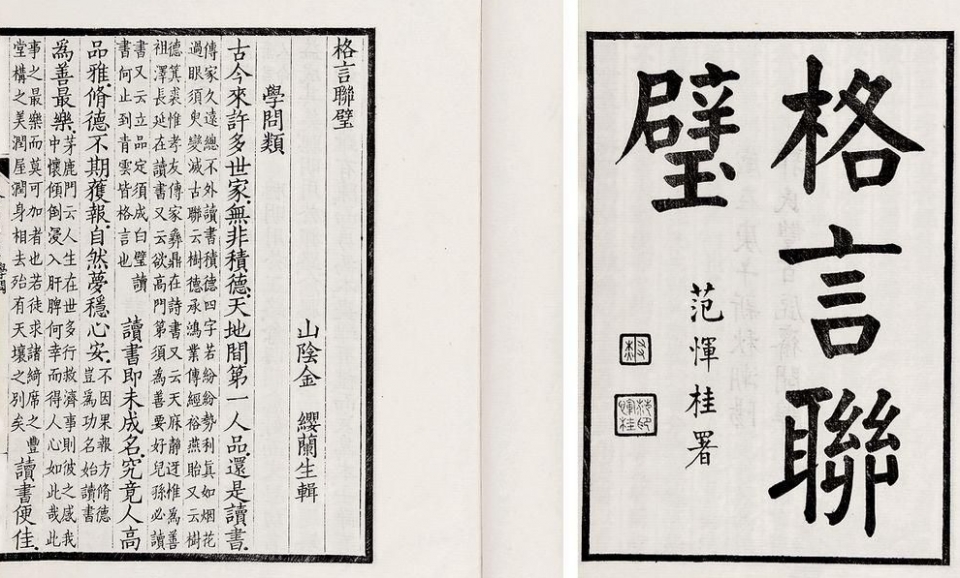 格言聯
璧
范惲桂署
格言聯璧
山陰金 纓蘭生輯
學問類
古今來許多世家.無非積德.天地間第一人品.還是讀書.
傳家久遠總不外讀書積德四字若紛紛勢利真如烟花
過眼須臾變滅古聯云樹德承鴻業傳經裕燕貽又云樹
德箕裘惟孝友傳家彝鼎在詩書又云天庥靜迓惟為善
祖澤長延在讀書又云欲高門第須為善要好兒孫必讀
書又云立品定須成白璧讀
書何止到青雲皆格言也
讀書即未成名.究竟人高
品雅.脩德不期獲報.自然夢穩心安.
不因果報方脩德
豈為功名始讀書
為善最樂.
茅鹿門云人生在世多行救濟事則彼之感我
中懷傾倒浸入肝脾何幸而得人心如此哉此
事之最樂而莫可加者也若徒求諸綺席之豐
堂構之美潤屋潤身相去殆有天壤之別矣
讀書便佳.